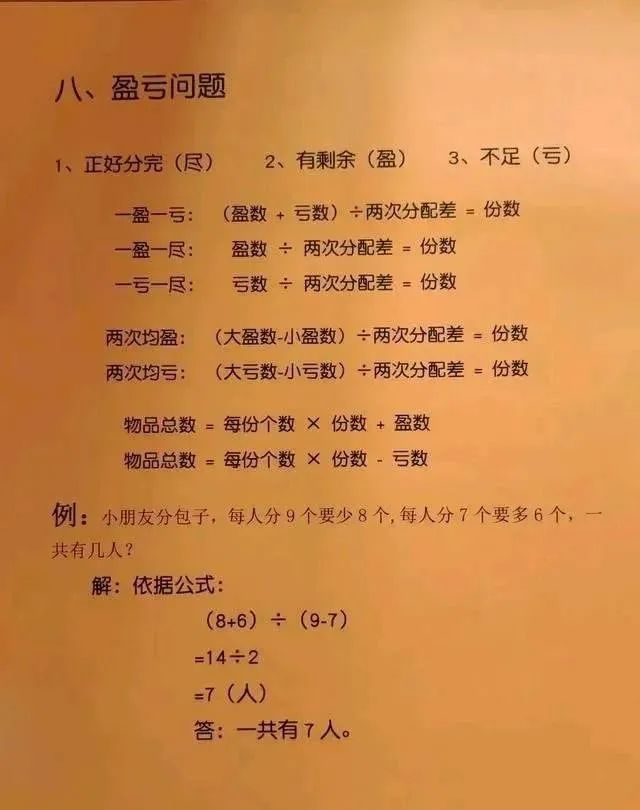 八、盈亏问题
1、正好分完（尽） 2、有剩余（盈） 3、不足（亏）
一盈一亏： （盈数 + 亏数）÷两次分配差 = 份数
一盈一尽： 盈数 ÷ 两次分配差 = 份数
一亏一尽： 亏数 ÷ 两次分配差 = 份数
两次均盈： （大盈数-小盈数）÷两次分配差 = 份数
两次均亏： （大亏数-小亏数）÷两次分配差 = 份数
物品总数 = 每份个数 × 份数 + 盈数
物品总数 = 每份个数 × 份数 - 亏数
例：小朋友分包子，每人分9个要少8个,每人分7个要多6个，一
共有几人？
解：依据公式：
（8+6）÷（9-7）
=14÷2
=7（人）
答：一共有7人。